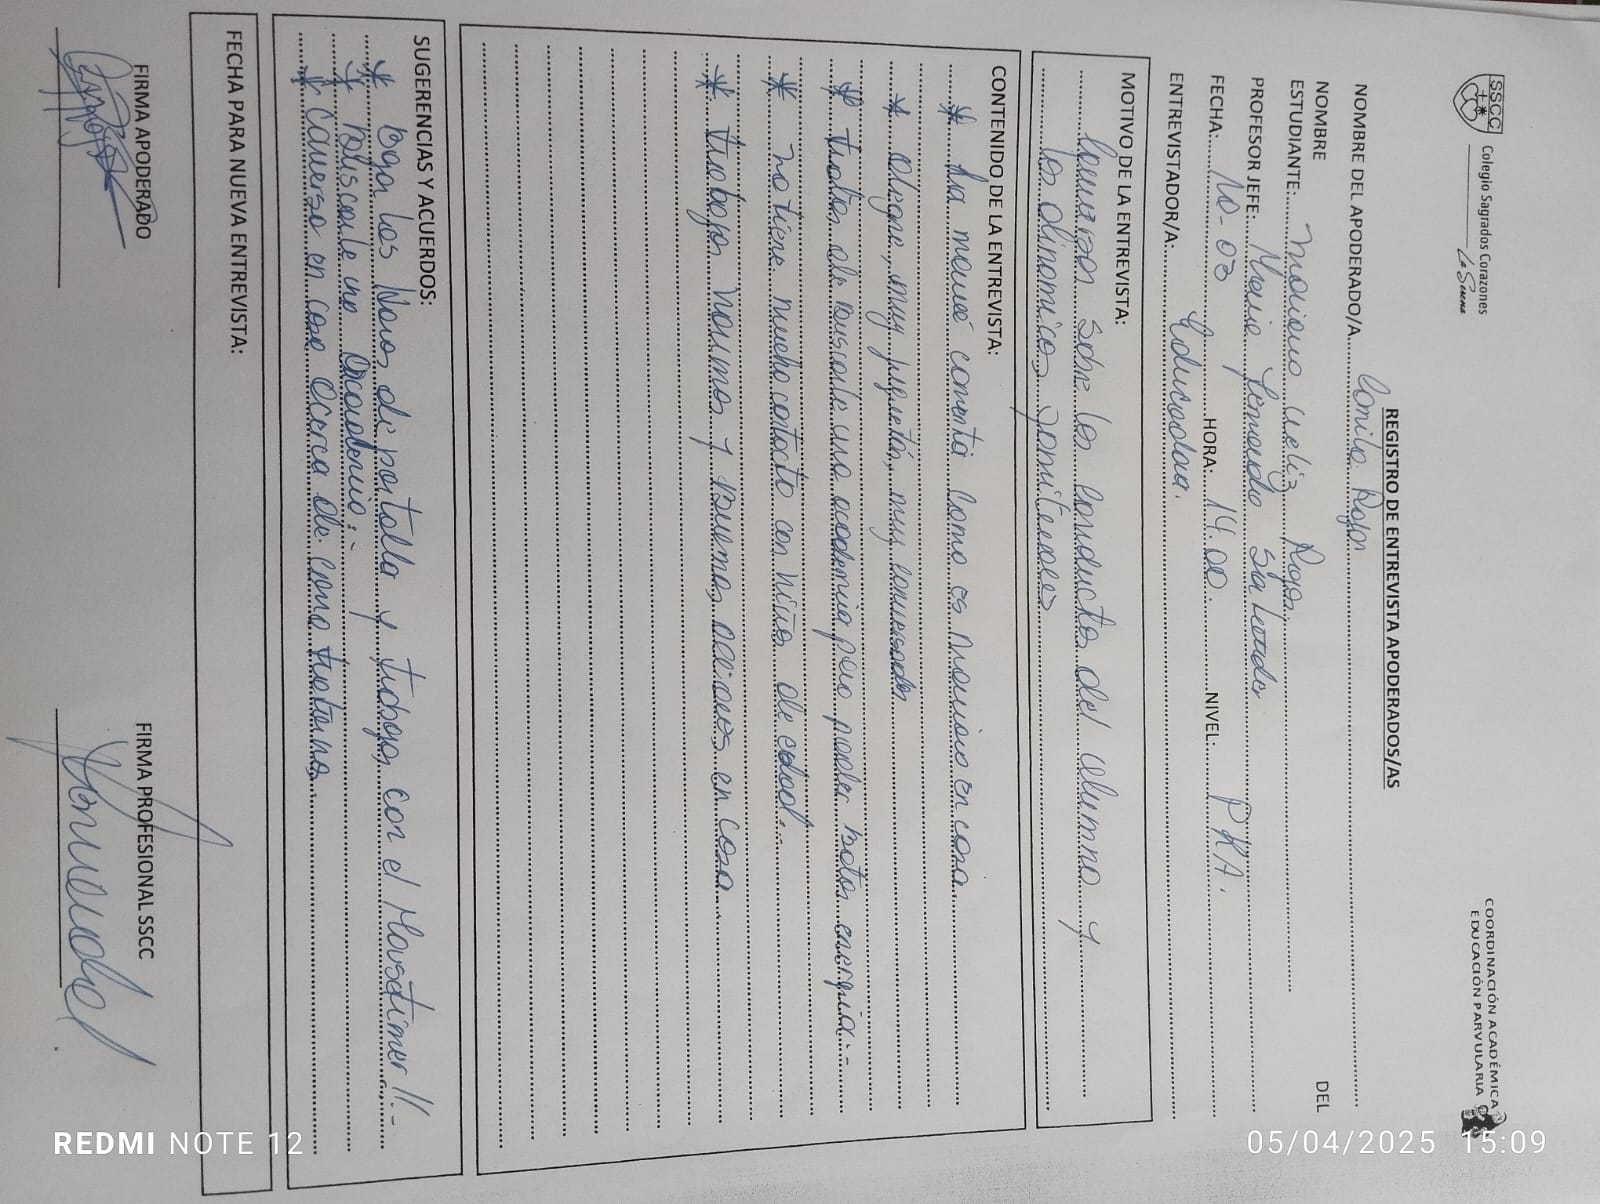 SSCC
Colegio Sagrados Corazones
La Serena
COORDINACIÓN ACADÉMICA
EDUCACIÓN PARVULARIA
REGISTRO DE ENTREVISTA APODERADOS/AS
NOMBRE DEL APODERADO/A Camila Rojas
NOMBRE DEL
ESTUDIANTE: Mariano Rojas
PROFESOR JEFE: Fernanda
FECHA: 10-03 HORA: 14.00. NIVEL: PKA.
ENTREVISTADOR/A: Educadora.
MOTIVO DE LA ENTREVISTA:
sobre las conductas del alumno y
las dinamicas familiares
CONTENIDO DE LA ENTREVISTA:
* La mamá comenta como es Mariano en casa
* Alegre, muy juguetón, muy
* tratar de buscarle una academia para poder botar energia.-
* no tiene mucho contacto con niños de edad.-
* trabajar normas y buenas acciones en casa.
SUGERENCIAS Y ACUERDOS:
* Bajar las horas de pantalla y trabajar con el !!.-
* Buscarle una academia:-
* Conversar en casa acerca de: como tratarnos
FECHA PARA NUEVA ENTREVISTA:
FIRMA APODERADO
FIRMA PROFESIONAL SSCC
REDMI NOTE 12
05/04/2025 15:09